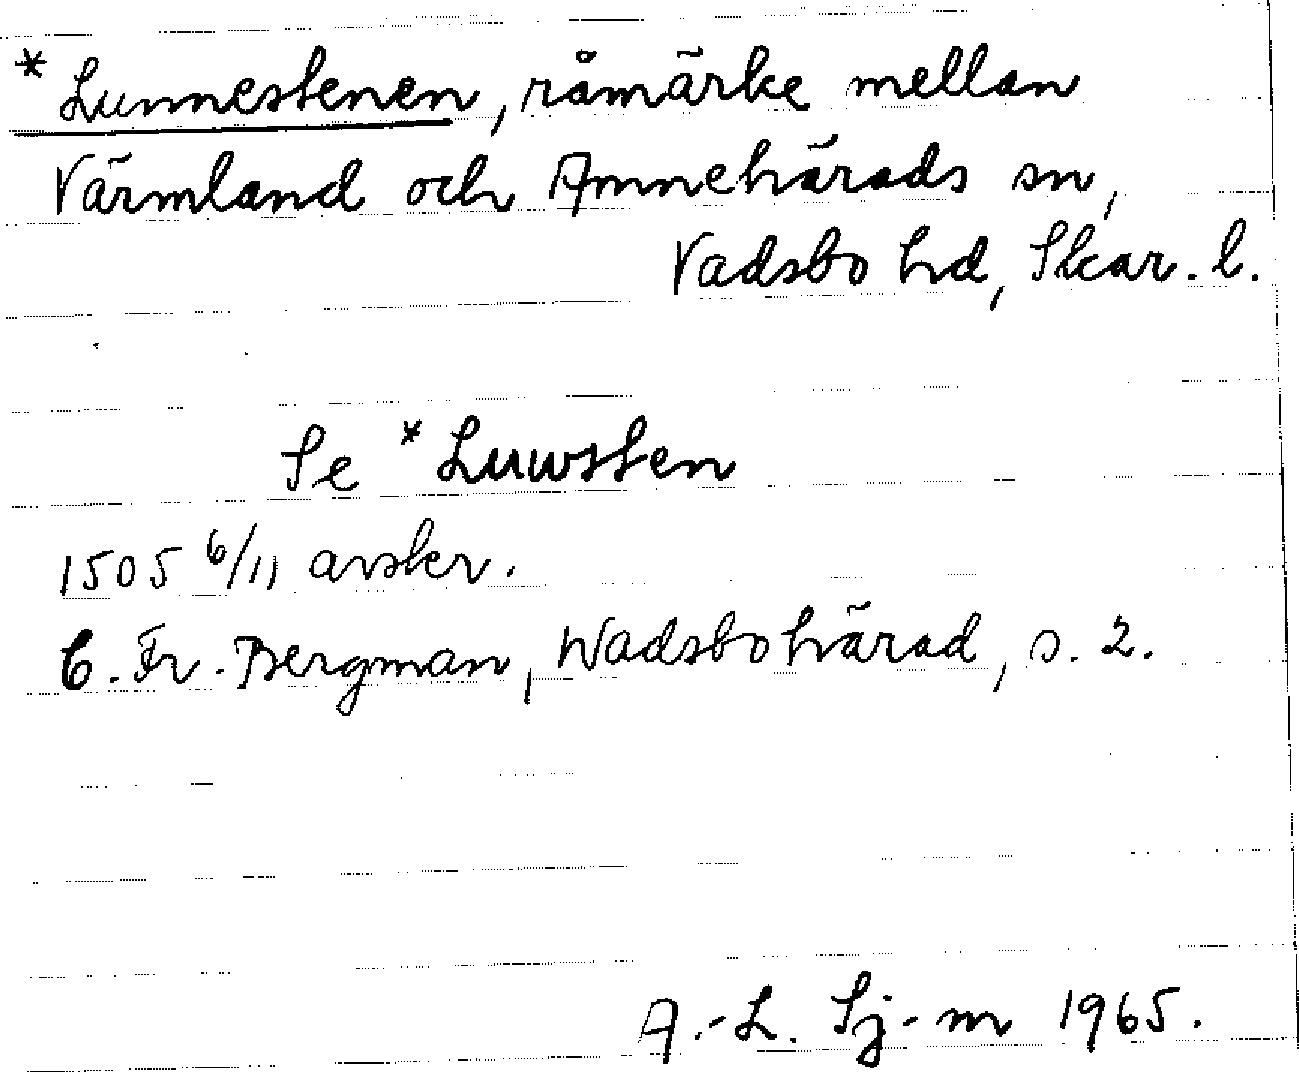 * Lunnestenen, råmärke mellan
Värmland och Amnehärads sn,
Vadsbo hd, Skar. l.
Se * Luwsten
1505 6/11 avskr.
C. Fr. Bergman, Wadsbo härad, s. 2.
A.-L. Sj-m 1965.